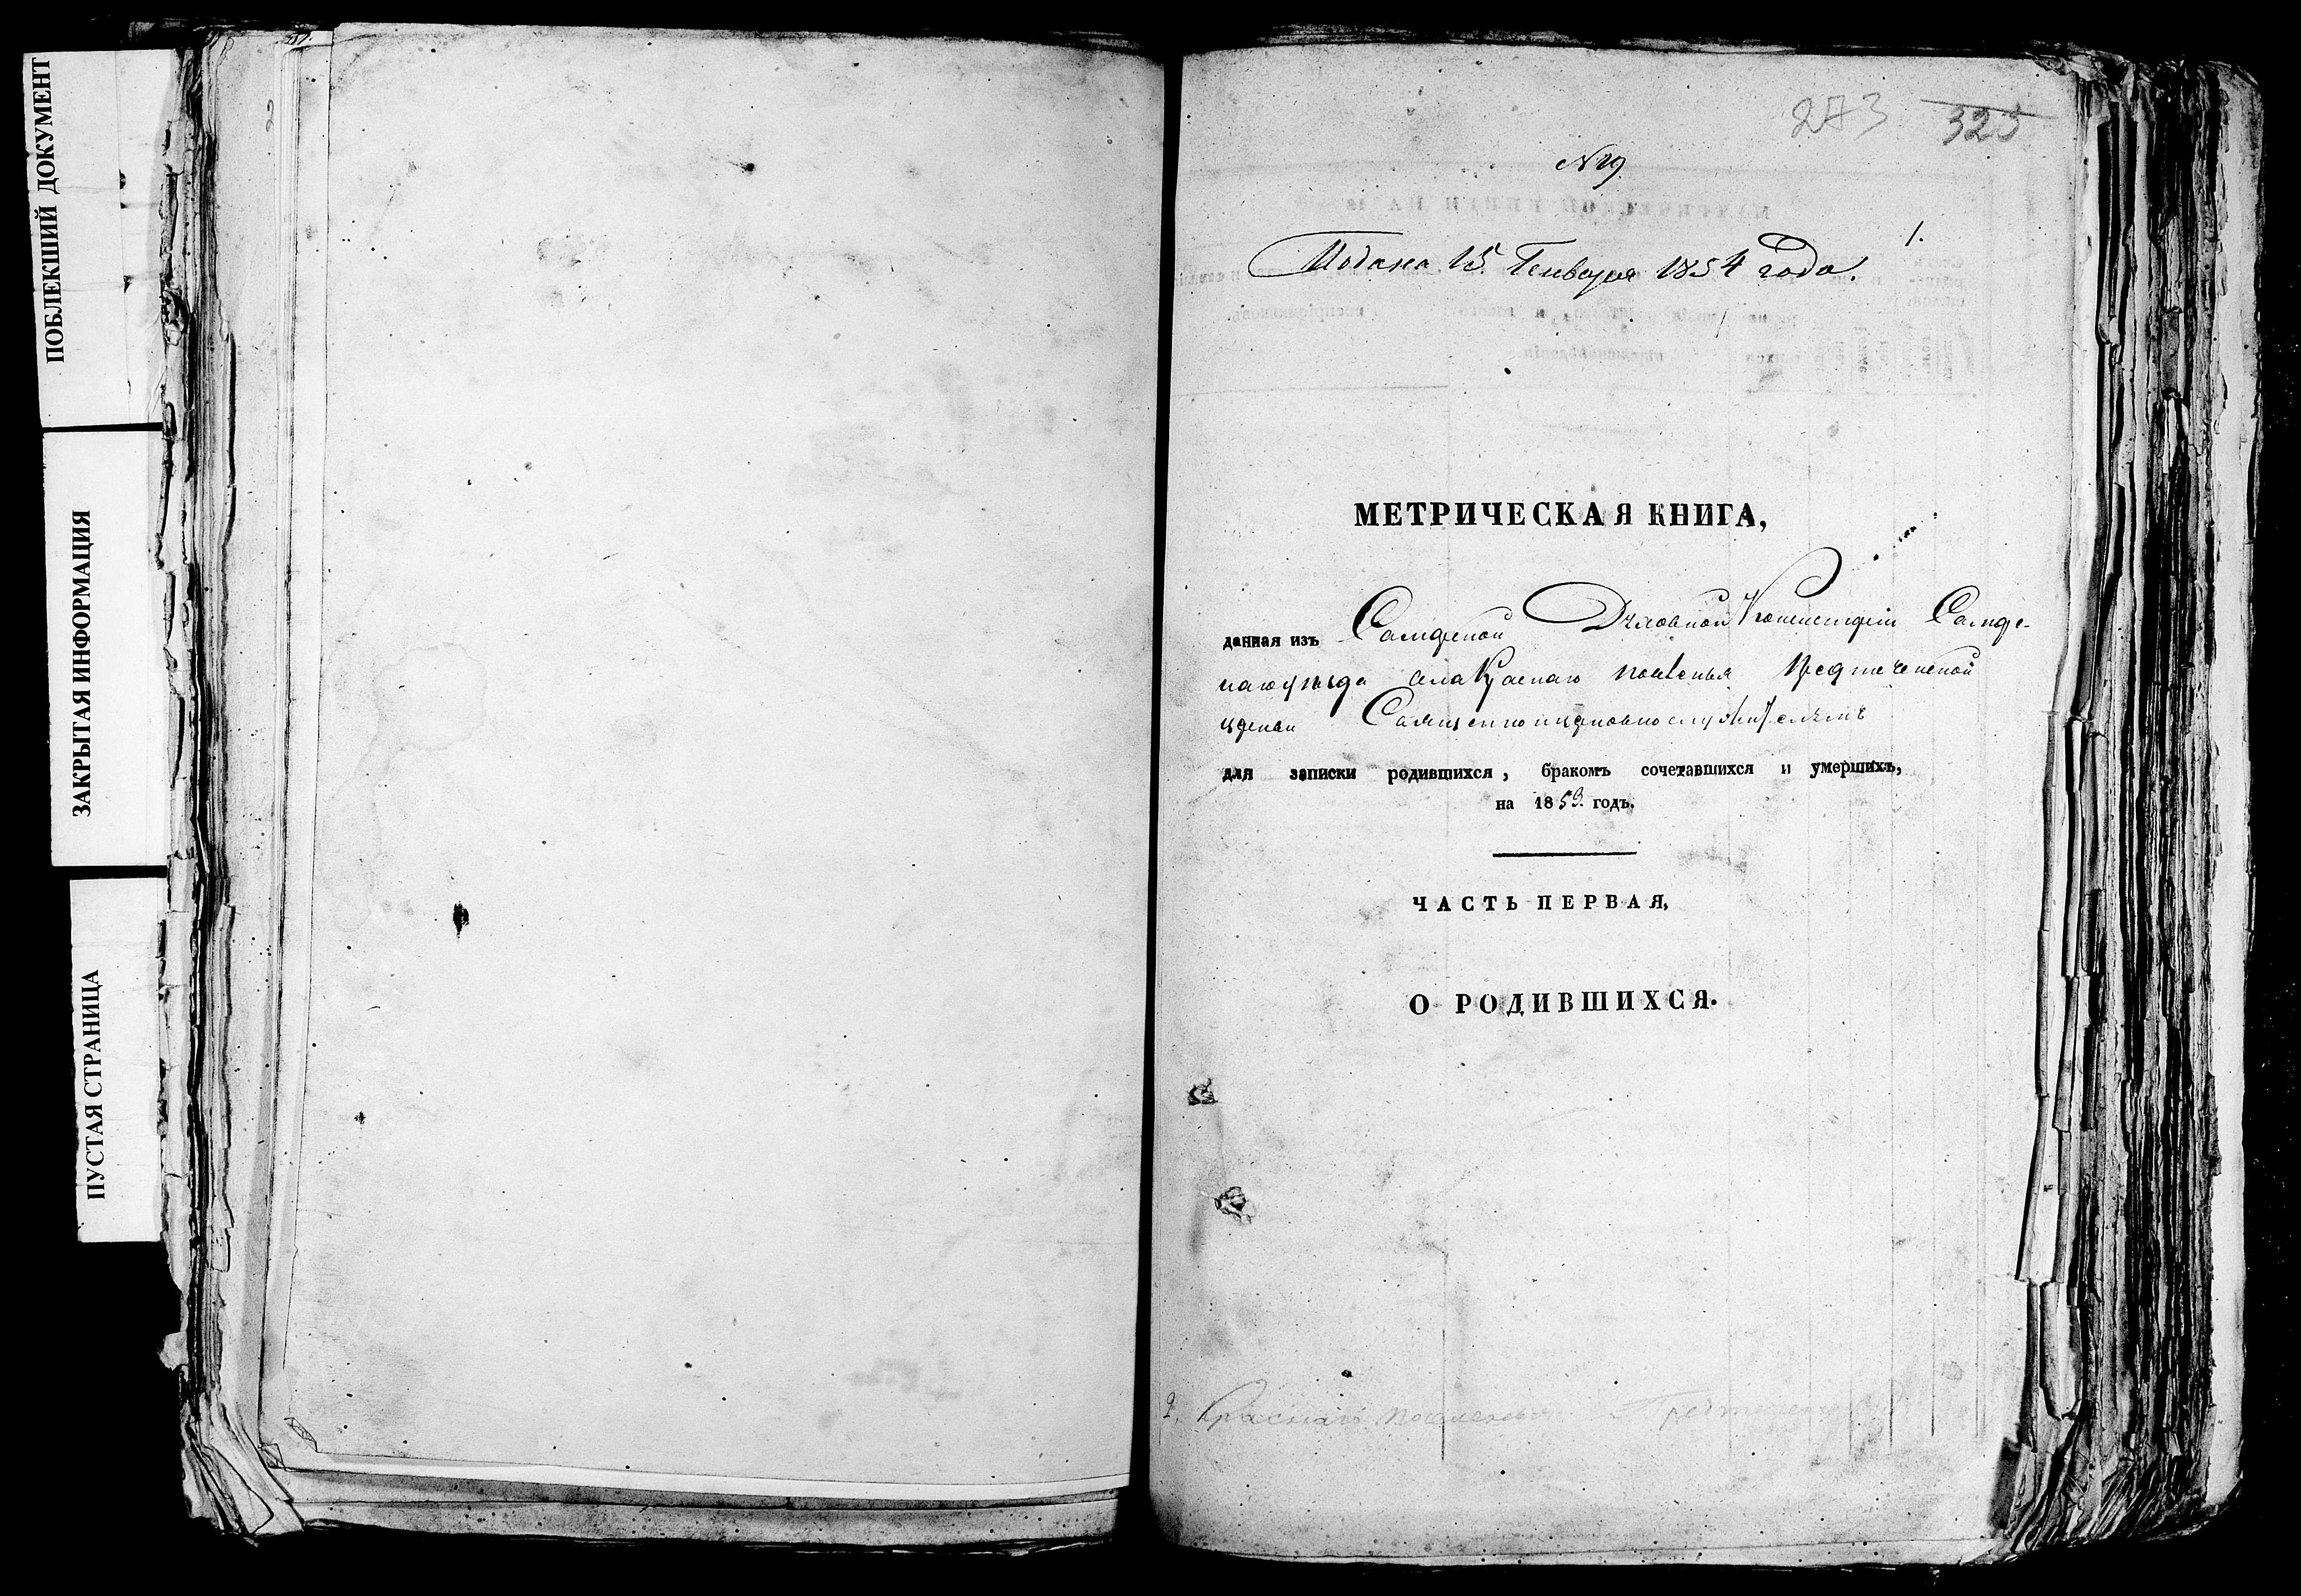 ПОБЛЕКШИЙ ДОКУМЕНТ
ЗАКРЫТАЯ ИНФОРМАЦИЯ
ПУСТАЯ СТРАНИЦА
273 325
N 19
1.
Подана 15 Генваря 1854 года.
МЕТРИЧЕСКАЯ КНИГА,
данная изъ Самарской Духовной Консисторіи Самар-
скаго уѣзда села Краснаго поселенья Предтеченской
церкви Священноцерковнослужителямъ
для записки родившихся, бракомъ сочетавшихся и умершихъ,
на 1853. годъ.
ЧАСТЬ ПЕРВАЯ,
О РОДИВШИХСЯ.
Краснаго Поселенья